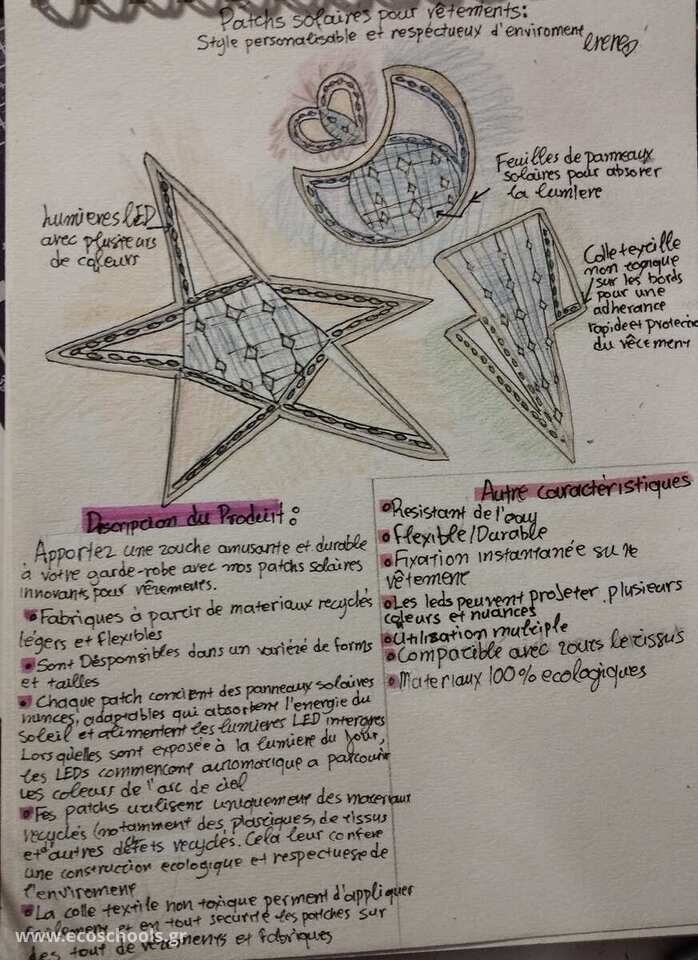 Patchs solaires pour vêtements:
Style personalisable et respéctueux d'enviroment
Feuilles de panneaux
solaires pour absorer
la lumiere
lumieres LED
avec plusieurs
de couleurs
Colle textille
non toxique
sur les bords
pour une
adherance
rapide et protecio
du vêtement
Descripcion du Produit:
Apportez une zouche amusante et durable
à votre garde-robe avec nos patchs solaires
innovants pour vêtements.
Fabriqués à partir de materiaux recyclés
légers et flexibles
Sont Désponsibles dans un variézé de forms
et tailles
Chaque patch contient des panneaux solaires
nunces, adaptables qui absorbent l'energie du
soleil et alimentent les lumieres LED integres
Lorsqu'elles sont exposée à la lumiere du jour,
les LEDs commencont automatique a parcourir
les coleurs de l'arc de ciel
Fes patchs utilisent uniquement des materiaux
recyclés (notamment des plastiques, de tissus
et d'autres défets recyclés. Cela leur confere
une construction ecologique et respectuese de
l'enviroment
La colle textile non toxique perment d'appliquer
et en tout securité les patches sur
des tout de vêtements et fabriques
Autre caractéristiques
Resistant de l'eau
Flexible/Durable
Fixation instantanée su le
vêtement
Les leds peuvent projeter plusieurs
coleurs et nuances
Utilisation multiple
Compatible avec tours le tissus
Materiaux 100% ecologiques
www.ecoschools.gr